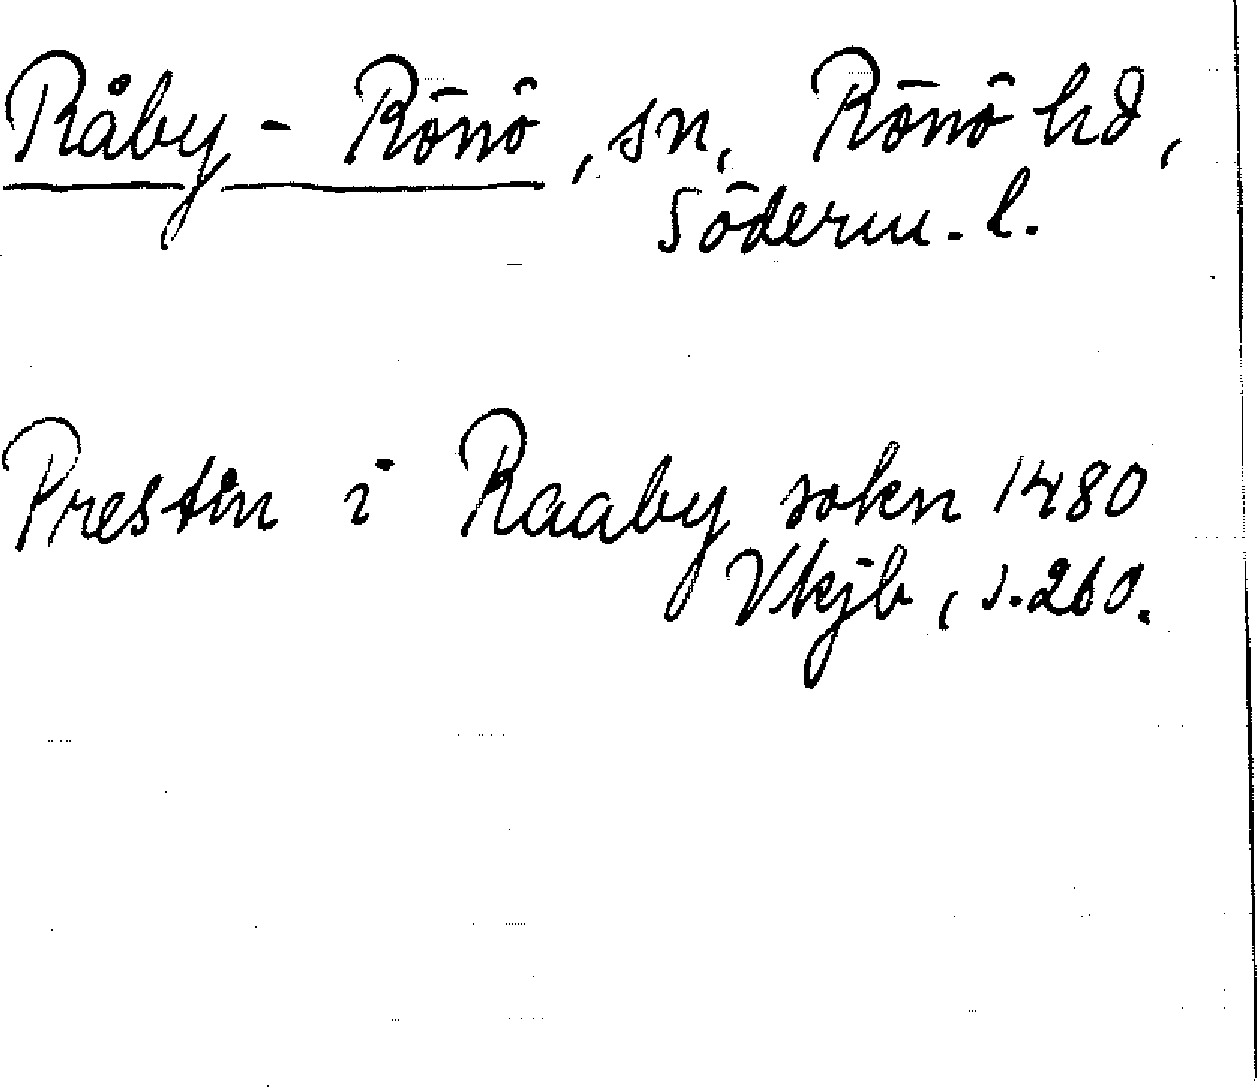 Råby-Rönö, sn, Rönö hd,
Söderm. l.
Prestin i Raaby sokn 1480
Vkjb, s. 260.